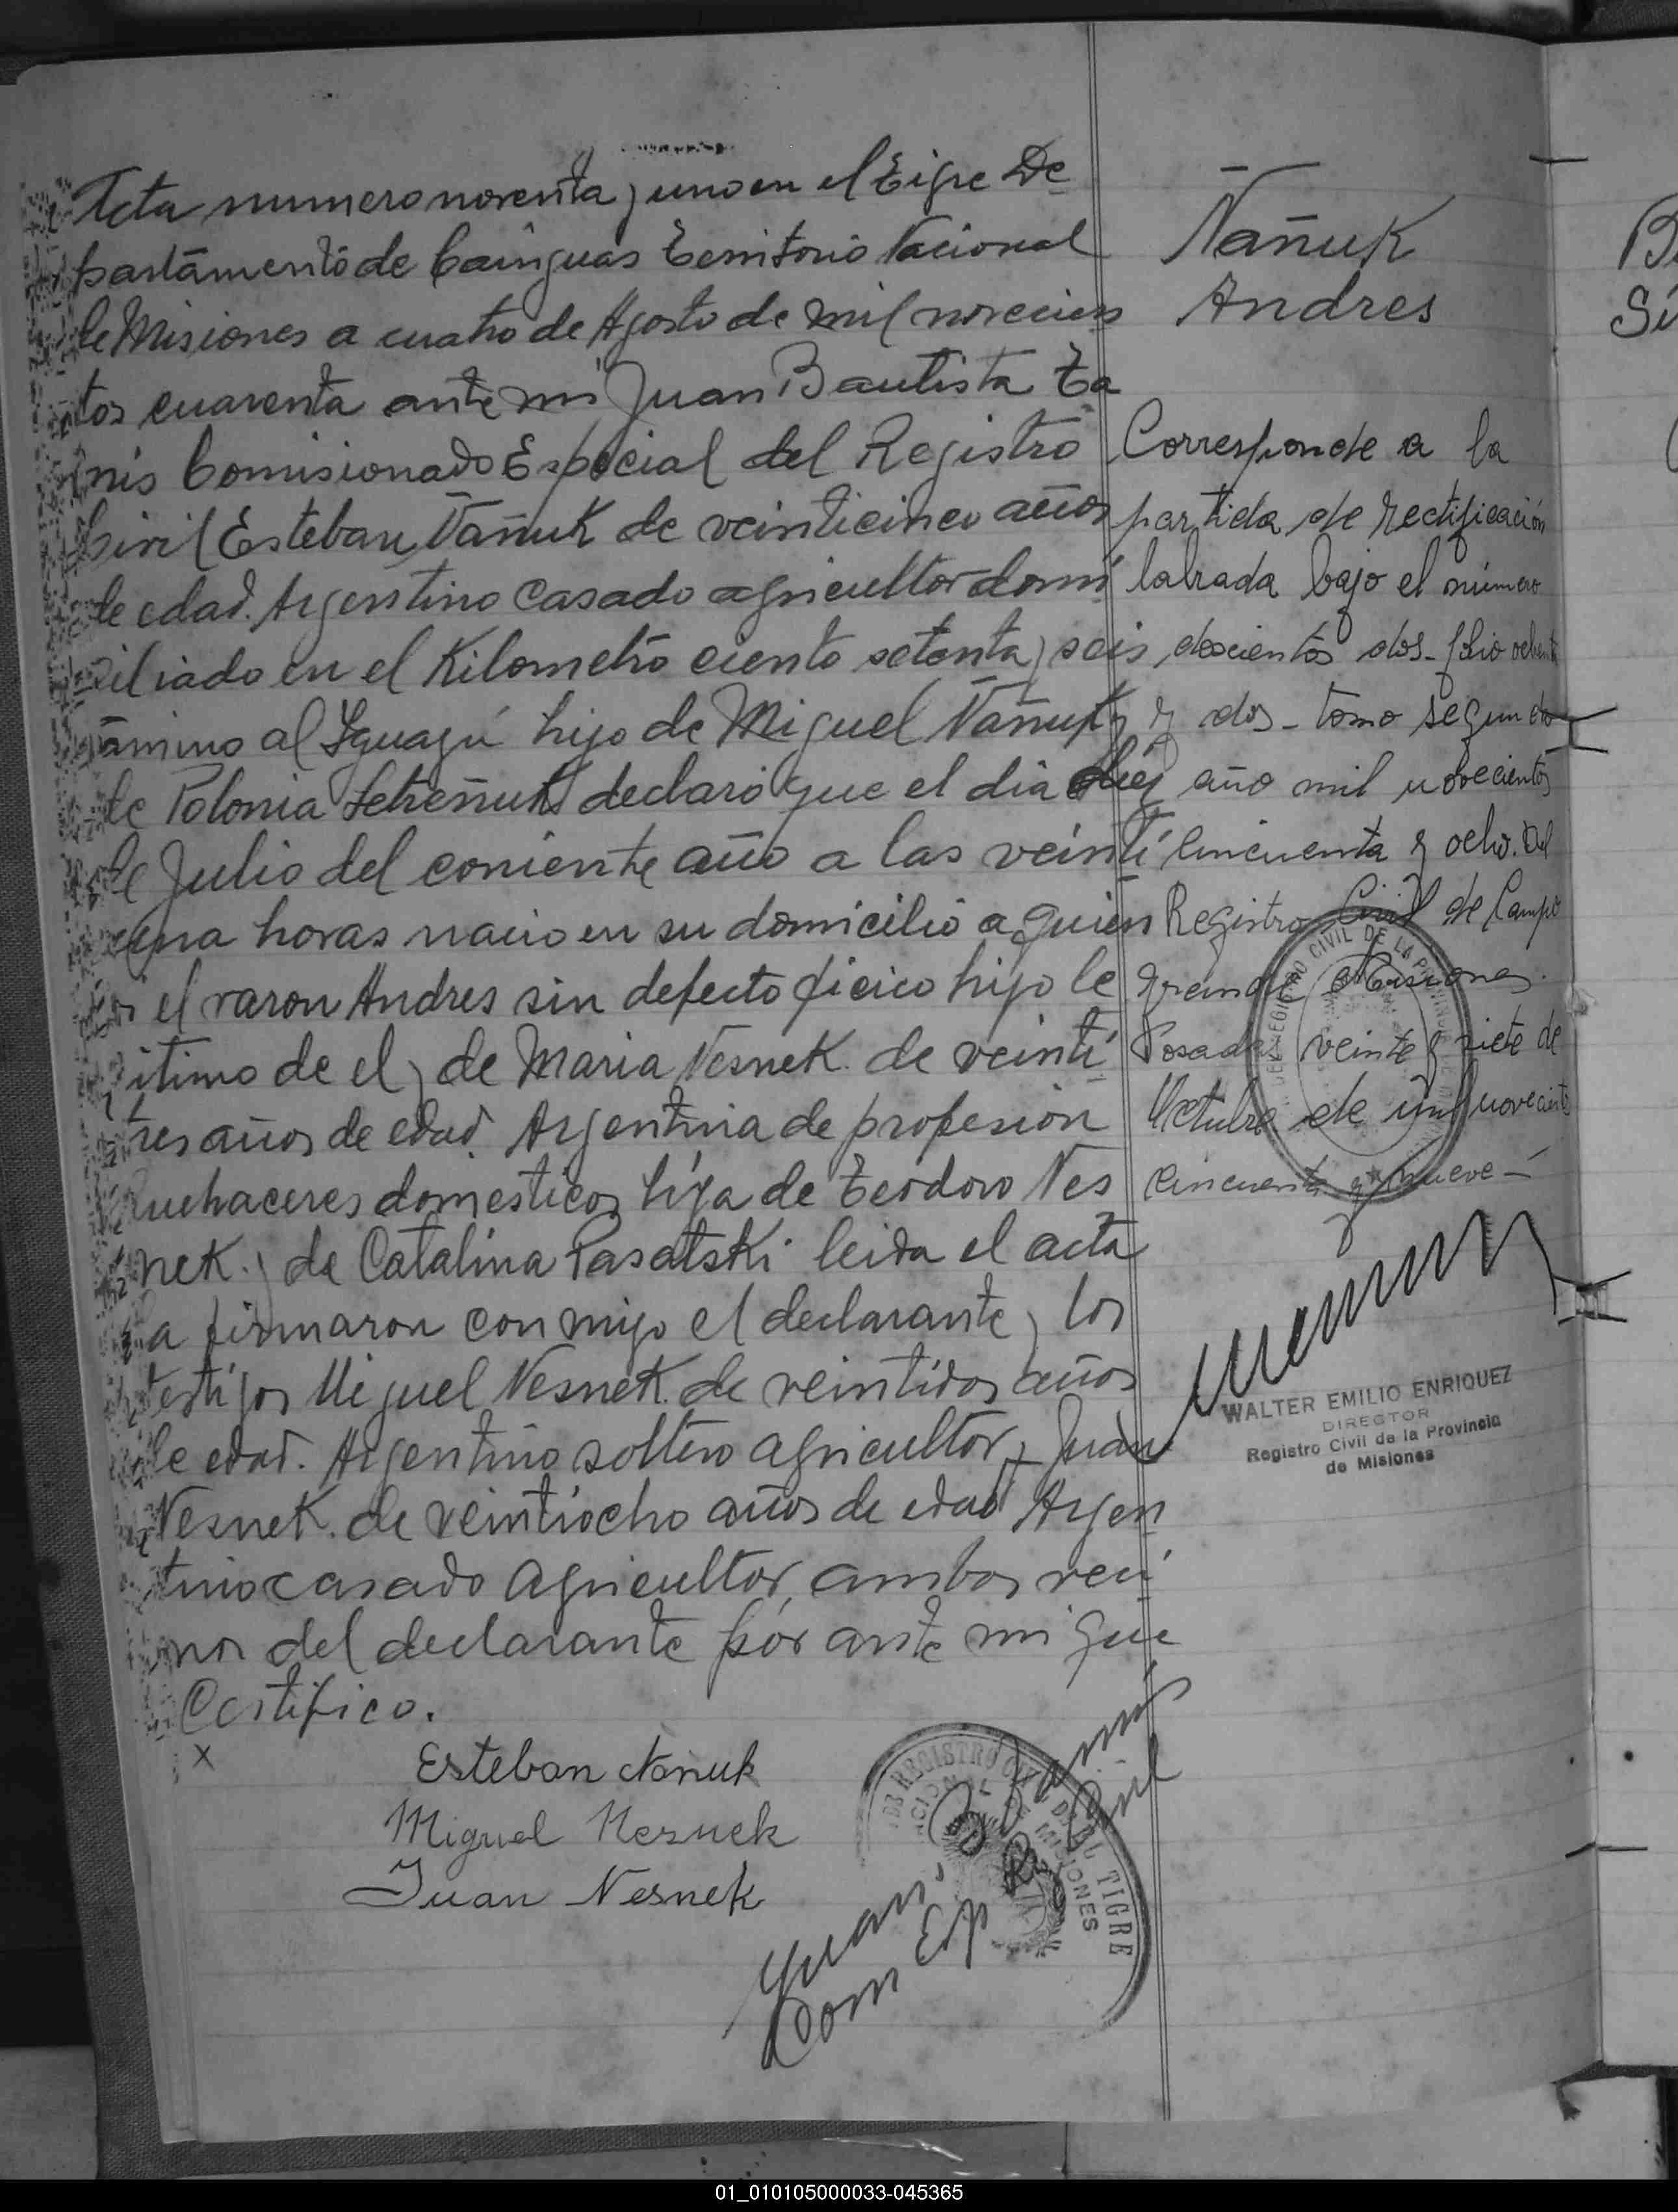 Acta numero noventa y uno en el Tigre De
partamento de Cainguas Territorio Nacional
de Misiones a cuatro de Agosto de mil novecien
tos cuarenta ante mi Juan Bautista Ta
nis Comisionado Especial del Registro
Civil Esteban Ñañuk de veinticinco años
de edad. Argentino casado agricultor domi
siliado en el Kilometro ciento setenta y seis
camino al Yguazú hijo de Miguel Ñañuk y
de Polonia declaró que el dia diez
de Julio del corriente año a las veinti
una horas nacio en su domicilio a quien
el varon Andres sin defecto ficico hijo le
gitimo de el y de Maria Nesnek. de veinti
tres años de edad. Argentina de profesion
quehaceres domesticos hija de Teodoro Nes
nek. y de Catalina Pasatski leida el acta
la firmaron con migo el declarante y los
testigos Miguel Nesnek. de veintidos años
de edad. Argentino soltero agricultor y Juan
Nesnek. de veintiocho años de edad Argen
tino casado agricultor, ambos veci
nos del declarante por ante mi que
Certifico.
x
Esteban Nañuk
Miguel Nesnek
Juan Nesnek
Juan B. Tanis
Com Esp R. Civil
REGISTRO CIVIL DEL TIGRE
MISIONES
Ñañuk
Andres
Corresponde a la
partida de rectificación
labrada bajo el número
doscientos dos - folio ochenta
y dos - tomo segundo
año mil novecientos
cincuenta y ocho. Del
Registro Civil de Campo
Grande Misiones.
Posadas veinte y siete de
Octubre de mil novecientos
cincuenta y nueve -
REGISTRO CIVIL DE LA PROVINCIA DE
WALTER EMILIO ENRIQUEZ
DIRECTOR
Registro Civil de la Provincia
de Misiones
01_010105000033-045365